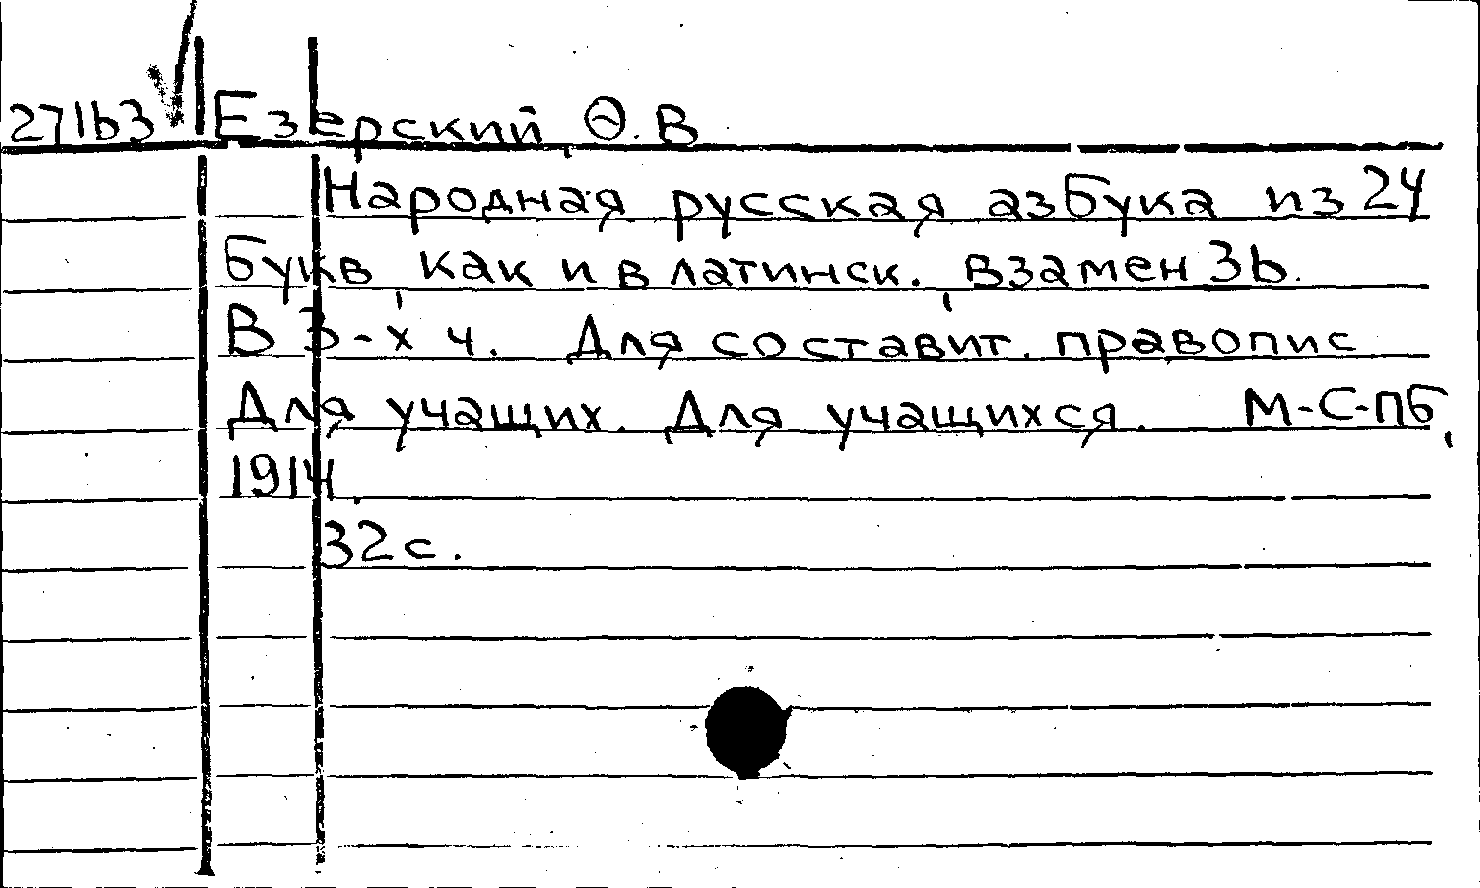 27163 Езерский, Ѳ. В
Народная русская азбука из 24
букв, как и в латинск., взамен 36.
В 3-х ч. Для составит. правопис
Для учащих. Для учащихся. М-С-Пб,
1914.
32 с.